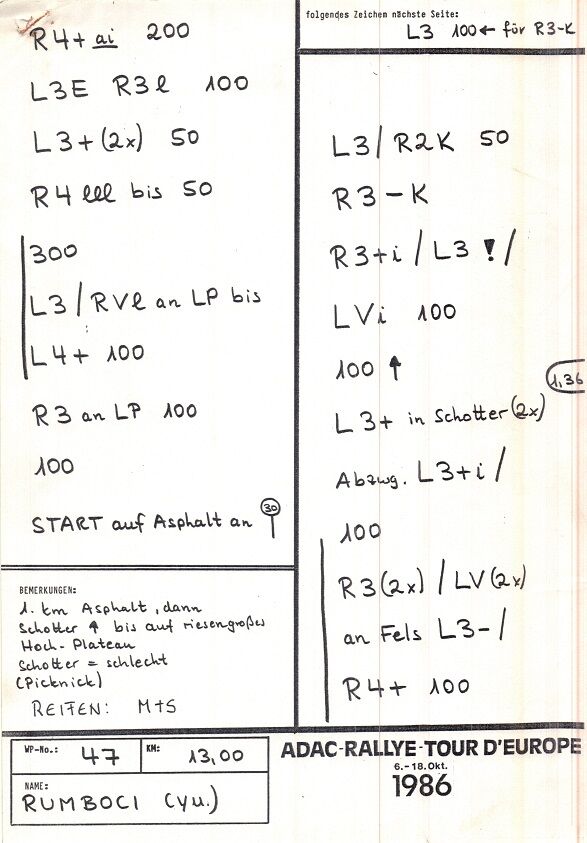 R4+ ai 200
L3E R3l 100
L3+(2x) 50
R4 lll bis 50
300
L3/RVl an LP bis
L4+ 100
R3 an LP 100
100
START auf Asphalt an 30
BEMERKUNGEN:
1. km Asphalt, dann
Schotter ↑ bis auf riesengroßes
Hoch-Plateau
Schotter = schlecht
(Picknick)
REIFEN: M+S
folgendes Zeichen nächste Seite:
L3 100← für R3-K
L3/R2K 50
R3-K
R3+i/L3 !/
LVi 100
100 ↑
1,36
L3+ in Schotter(2x)
Abzwg. L3+i/
100
R3(2x)/LV(2x)
an Fels L3-/
R4+ 100
WP-No.: 47 KM: 13,00
NAME:
RUMBOCI (yu.)
ADAC-RALLYE-TOUR D'EUROPE
6.-18.Okt.
1986